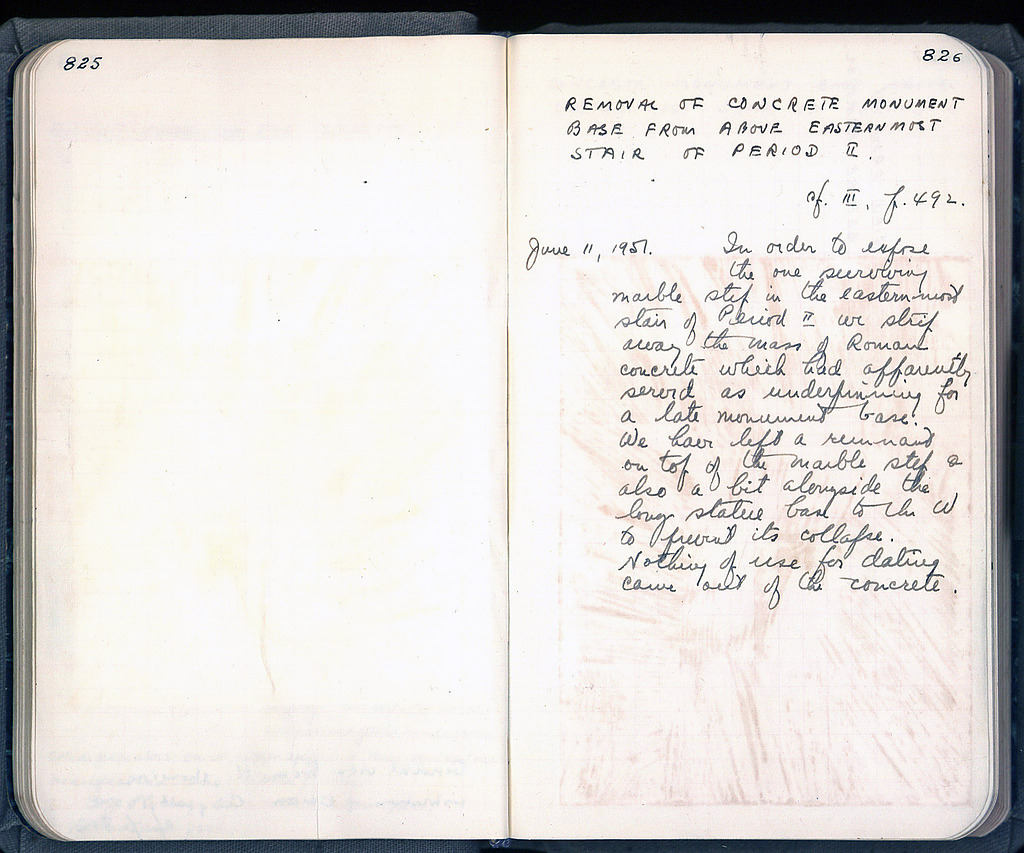 825
826
REMOVAL OF CONCRETE MONUMENT
BASE FROM ABOVE EASTERNMOST
STAIR OF PERIOD II.
cf. III, p. 492.
June 11, 1951. In order to expose
the one surviving
marble step in the easternmost
stair of Period II we strip
away the mass of Roman
concrete which had apparently
served as underpinning for
a late monument base.
We have left a remnant
on top of the marble step &
also a bit alongside the
long statue base to the W
to prevent its collapse.
Nothing of use for dating
came out of the concrete.